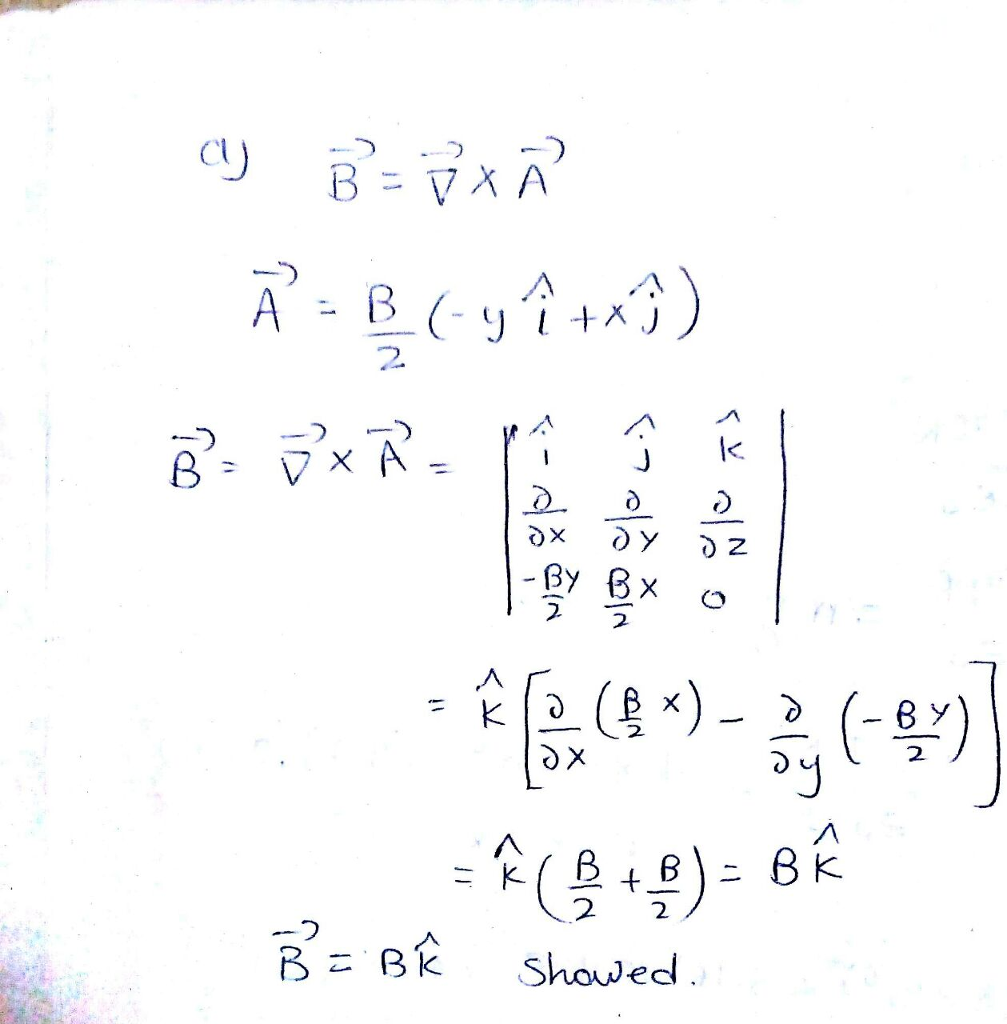 a) B⃗ = ∇⃗ × A⃗
A⃗ = B/2 (-y î + x ĵ)
B⃗ = ∇⃗ × A⃗ = | î ĵ k̂ |
| ∂/∂x ∂/∂y ∂/∂z |
| -By/2 B/2 x 0 |
= k̂ [∂/∂x (B/2 x) - ∂/∂y (-By/2)]
= k̂ (B/2 + B/2) = B k̂
B⃗ = B k̂ Showed.